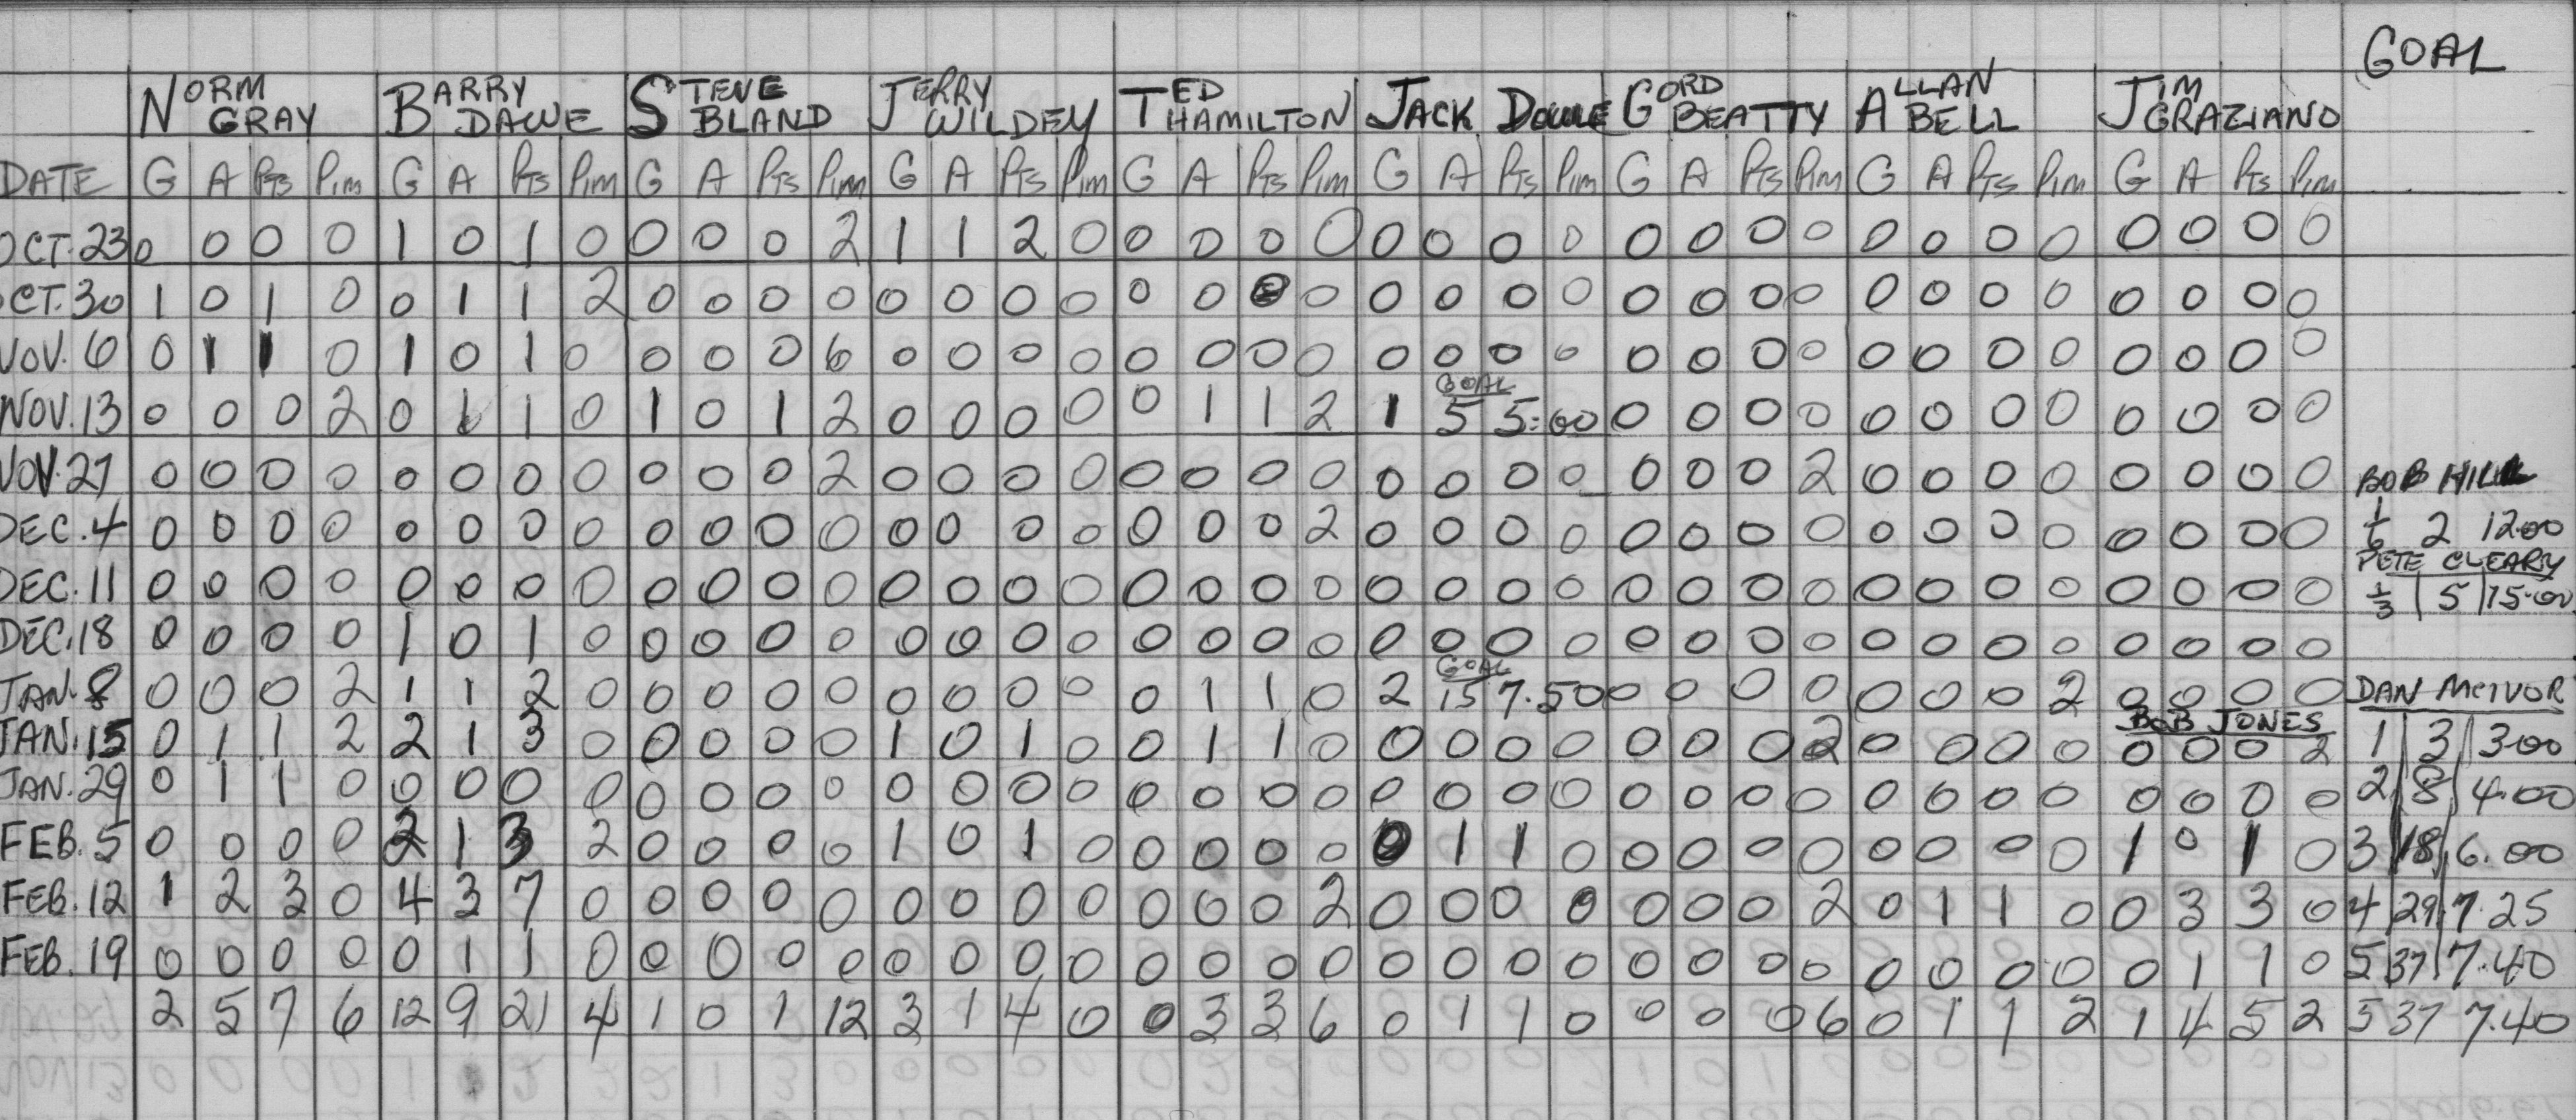 GOAL
NORM GRAY BARRY DAWE STEVE BLAND JERRY WILDEY TED HAMILTON JACK DOWLE GORD BEATTY ALLAN BELL JIM GRAZIANO
DATE G A PTS PIM G A PTS PIM G A PTS PIM G A PTS PIM G A PTS PIM G A PTS PIM G A PTS PIM G A PTS PIM G A PTS PIM
OCT. 23 0 0 0 0 1 0 1 0 0 0 0 2 1 1 2 0 0 0 0 0 0 0 0 0 0 0 0 0 0 0 0 0 0 0 0 0
OCT. 30 1 0 1 0 0 1 1 2 0 0 0 0 0 0 0 0 0 0 0 0 0 0 0 0 0 0 0 0 0 0 0 0 0 0 0 0
NOV. 6 0 1 1 0 1 0 1 0 0 0 0 6 0 0 0 0 0 0 0 0 0 0 0 0 0 0 0 0 0 0 0 0 0 0 0 0
GOAL
NOV. 13 0 0 0 2 0 1 1 0 1 0 1 2 0 0 0 0 0 1 1 2 1 5 5.00 0 0 0 0 0 0 0 0 0 0 0 0
NOV. 27 0 0 0 0 0 0 0 0 0 0 0 2 0 0 0 0 0 0 0 0 0 0 0 0 0 0 0 2 0 0 0 0 0 0 0 0 BOB HILL
DEC. 4 0 0 0 0 0 0 0 0 0 0 0 0 0 0 0 0 0 0 0 2 0 0 0 0 0 0 0 0 0 0 0 0 0 0 0 0 1/6 2 12.00
PETE CLEARY
DEC. 11 0 0 0 0 0 0 0 0 0 0 0 0 0 0 0 0 0 0 0 0 0 0 0 0 0 0 0 0 0 0 0 0 0 0 0 0 1/3 5 15.00
DEC. 18 0 0 0 0 1 0 1 0 0 0 0 0 0 0 0 0 0 0 0 0 0 0 0 0 0 0 0 0 0 0 0 0 0 0 0 0
GOAL
JAN. 8 0 0 0 2 1 1 2 0 0 0 0 0 0 0 0 0 0 1 1 0 2 15 7.50 0 0 0 0 0 0 0 2 0 0 0 0 DAN McIVOR
BOB JONES
JAN. 15 0 1 1 2 2 1 3 0 0 0 0 0 1 0 1 0 0 1 1 0 0 0 0 0 0 0 0 2 0 0 0 0 0 0 0 2 1 3 3.00
JAN. 29 0 1 1 0 0 0 0 0 0 0 0 0 0 0 0 0 0 0 0 0 0 0 0 0 0 0 0 0 0 0 0 0 0 0 0 0 2 8 4.00
FEB. 5 0 0 0 0 2 1 3 2 0 0 0 0 1 0 1 0 0 0 0 0 0 1 1 0 0 0 0 0 0 0 0 0 1 0 1 0 3 18 6.00
FEB. 12 1 2 3 0 4 3 7 0 0 0 0 0 0 0 0 0 0 0 0 2 0 0 0 0 0 0 0 2 0 1 1 0 0 3 3 0 4 29 7.25
FEB. 19 0 0 0 0 0 1 1 0 0 0 0 0 0 0 0 0 0 0 0 0 0 0 0 0 0 0 0 0 0 0 0 0 0 1 1 0 5 37 7.40
2 5 7 6 12 9 21 4 1 0 1 12 3 1 4 0 0 3 3 6 0 1 1 0 0 0 0 6 0 1 1 2 1 4 5 2 5 37 7.40